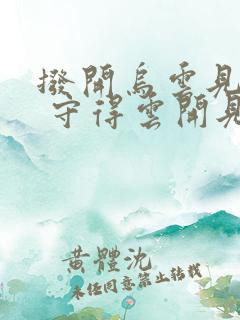 撥開烏雲見
守得雲開見
黃體沈
未經同意禁止轉載